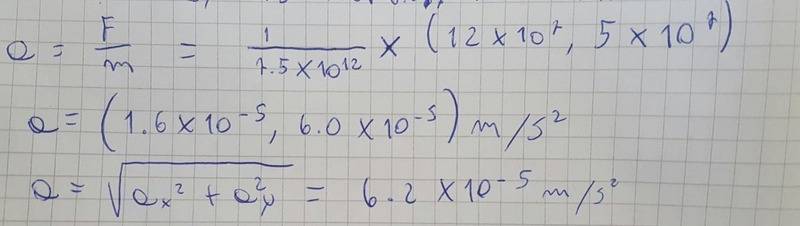 a = F/m = 1/(7.5 × 10¹²) × (12 × 10⁷, 5 × 10⁷)
a = (1.6 × 10⁻⁵, 6.0 × 10⁻⁵) m/s²
a = √(aₓ² + a²ᵧ) = 6.2 × 10⁻⁵ m/s²